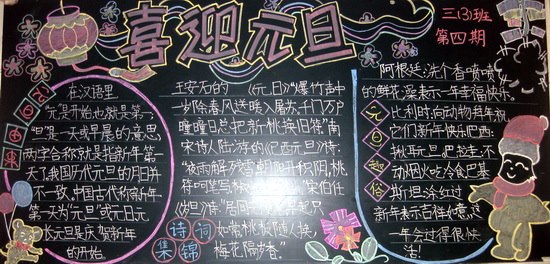 喜迎元旦
三(3)班
第四期
在汉语里
"元"是开始也就是第一,
"旦"是一天或早晨的意思
两字合称就是指新年第一
天,我国历代元旦的月日并
不一致,中国古代称新年
第一天为"元旦"或元日元
长元旦是庆贺新年
的开始.
王安石的《元日》"爆竹声中
一岁除,春风送暖入屠苏,千门万户
曈曈日总把新桃换旧符."南
宋诗人陆游的《己酉元旦》:
"夜雨解残雪,朝阳开积阴,桃
符呵笔写
宋伯仁
诗:"居间
只
如常桃板随人换,
梅花隔岁香."
诗词
集锦
阿根廷:洗个香喷喷
的鲜花澡表示一年幸福快乐.
比利时:向动物拜年,祝
它们新年快乐巴西:
揪耳
不
动烟火吃冷食巴基
斯坦:涂红
新年
一年会过得很快
活!
元旦趣俗